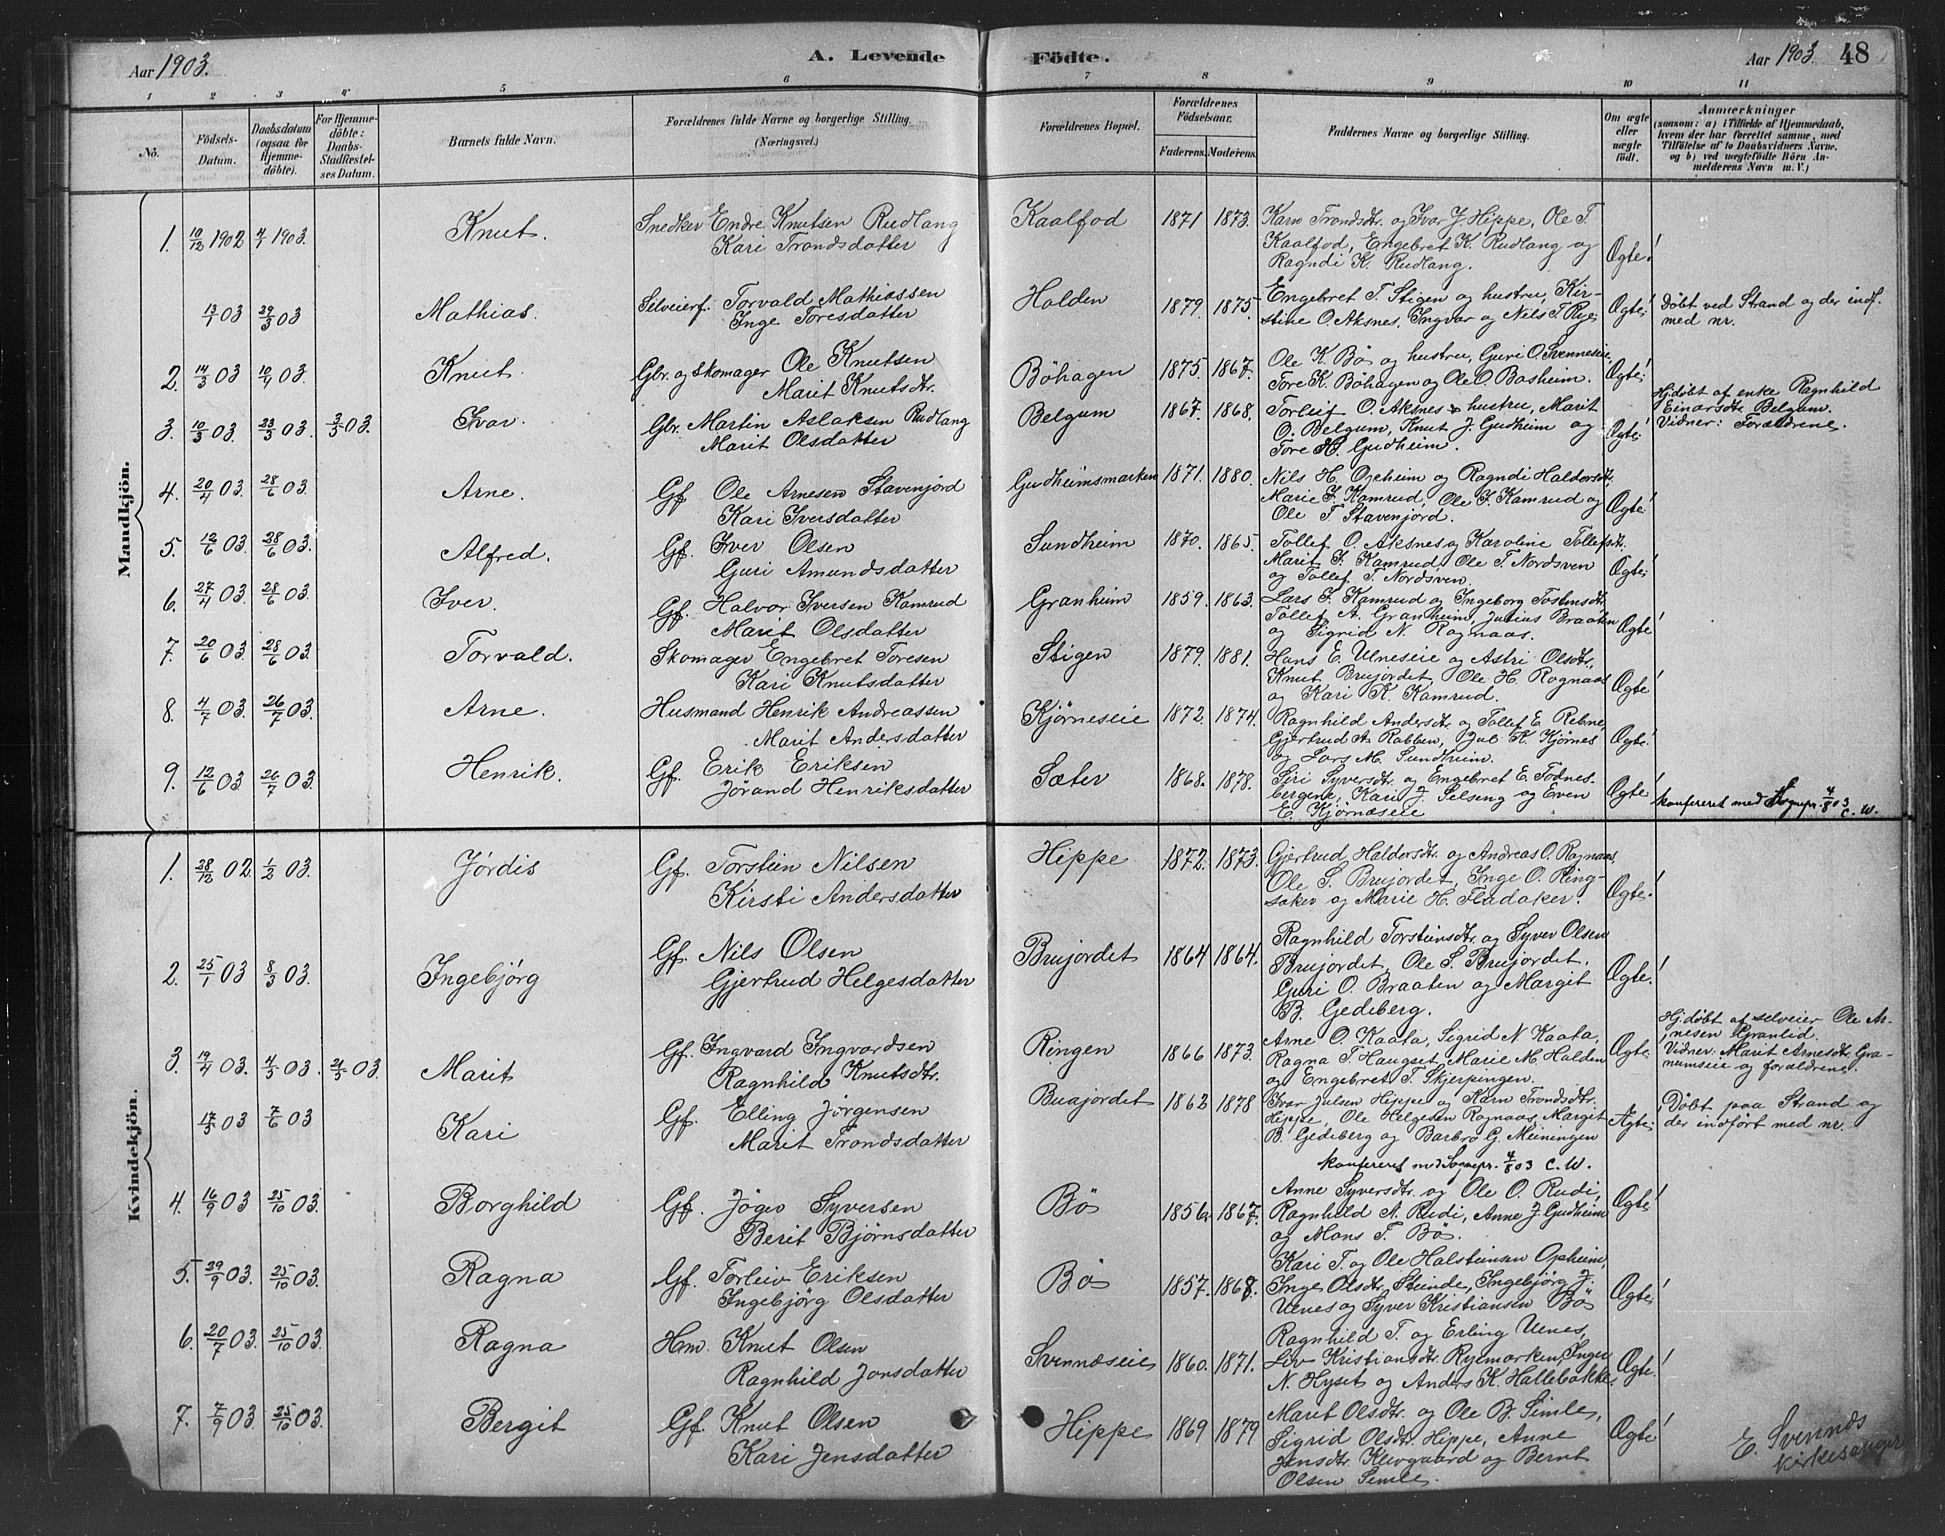 Aar 1903.
A. Levende Födte.
Aar 1903. 48
1 2 3 4 5 6 7 8 9 10 11
No.
Födsels-Datum.
Daabsdatum (ogsaa for Hjemme-döbte).
For Hjemme-döbte: Daabs-Stadfæstel-ses Datum.
Barnets fulde Navn.
Forældrenes fulde Navne og borgerlige Stilling. (Næringsvei.)
Forældrenes Bopæl.
Forældrenes Födselsaar.
Faderens. Moderens.
Faddernes Navne og borgerlige Stilling.
Om ægte eller uægte födt.
Anmærkninger
(saasom: a) i Tilfælde af Hjemmedaab,
hvem der har forrettet samme, med
Tilföielse af to Daabsvidners Navne.
og b) ved uægtefödte Börn An-
melderens Navn m. V.)
Mandkjön.
1. 10/12 1902 4/1 1903. Knut. Snedker Endre Knutsen Rudlang Kaalfod 1871 1873. Karn Trondsdtr. og Ivar J Hippe, Ole T.
Kari Trondsdatter Kaalfod, Engebret K. Rudlang og Ægte!
Ragndi K. Rudlang.
13/1 03 29/3 03 Mathias. Selveierf. Torvald Mathiassen Halden 1879. 1875. Engebret T. Stigen og hustru, Kir- Ægte! Döbt ved Strand og der indf.
Inge Toresdatter stine O. Aksnes, Ingvar og Nils T. Rye med nr.
2. 14/3 03 10/4 03. Knut. Gbr. og Skomager Ole Knutsen Böhagen 1875. 1867. Ole K. Bö og hustru, Guri O. Svenneseie,
Marit Knutsdtr. Tore K. Böhagen og Ole O. Bosheim. Ægte!
3. 10/3 03. 23/3 03. 3/5 03. Ivar. Gbr. Martin Aslaksen Rudlang Belgum 1867. 1868. Torleif O. Aksnes & hustru, Marit Hjdöbt af enke Ragnhild
Marit Olsdatter O. Belgum, Knut J. Gudheim og Ægte! Einarsdtr. Belgum.
Tore H. Gudheim. Vidner: Forældrene.
4. 20/4 03. 28/6 03. Arne. Gf. Ole Arnesen Stavenjord Gudheimsmarken 1871. 1880. Nils H. Opheim og Ragndi Haldorsdtr.
Kari Iversdatter Marie I. Kamrud, Ole I. Kamrud og Ægte!
Ole T. Stavenjord.
5. 12/6 03. 28/6 03. Alfred. Gf. Iver Olsen Sundheim 1870. 1865. Tollef O. Aksnes og Karoline Tollefsdtr.
Guri Amundsdatter Marit I. Kamrud, Ole T. Nordsven Ægte!
og Tollef T. Nordsven.
6. 27/4 03. 28/6 03. Iver. Gf. Halvor Iversen Kamrud Granheim 1859. 1863. Lars I. Kamrud og Ingeborg Tostensdtr.
Marit Olsdatter Tollef A. Granheim, Julius Braaten Ægte!
og Sigrid N. Rognaas.
7. 20/6 03. 28/6 03. Torvald. Skomager Engebret Toresen Stigen 1879. 1881. Hans E. Ulneseie og Astri Olsdtr.,
Kari Knutsdatter Knut Brujordet, Ole H. Rognaas Ægte!
og Kari K. Kamrud.
8. 4/7 03. 26/7 03. Arne. Husmand Henrik Andreassen Kjörneseie 1872. 1874. Ragnhild Andersdtr. og Tollef E. Rebne,
Marit Andersdatter Gjertrud A. Rabben, Jul K. Kjörnes Ægte!
og Lars M. Sundheim.
9. 12/6 03 26/7 03. Henrik. Gf. Erik Eriksen Sæter 1868. 1878. Siri Syversdtr. og Engebret E. Fodnes-
Jörand Henriksdatter bergene, Kari J. Selseng og Even Ægte! konfereret med Sognepr. 4/8 03
E. Kjörnæseie C. W.
Kvindekjön.
1. 28/12 02. 1/2 03. Jördis Gf. Torstein Nilsen Hippe 1872. 1873. Gjertrud Haldorsdtr. og Andreas O. Rognaas,
Kirsti Andersdatter Ole S. Brujordet, Inge O. Ring- Ægte!
saker og Marie H. Fladaker.
2. 25/1 03 8/3 03. Ingebjörg Gf. Nils Olsen Brujordet 1864 1864. Ragnhild Torsteinsdtr. og Syver Olsen
Gjertrud Helgesdatter Brujordet, Ole S. Brujordet, Ægte!
Guri O. Braaten og Margit
B. Gedeberg.
3. 19/4 03. 4/5 03. 21/5 03. Marit Gf. Ingvard Ingvardsen Ringen 1866 1873. Arne O. Kaata, Sigrid N Kaata, Ægte. Hjdöbt af selveier Ole Ar-
Ragnhild Knutsdtr. Ragna T. Haugset, Marie M. Halden nesen Granlid.
og Engebret T. Skjerpingen. Vidner: Marit Arnesdtr. Gra-
numseie og forældrene.
17/3 03 7/6 03 Kari Gf. Elling Jörgensen Buajordet 1862 1878 Ivar Julsen Hippe og Karn Trondsdtr. Döbt paa Strand og
Marit Trondsdatter Hippe, Ole Helgesen Rognaas, Margit Ægte! der indfört med nr.
B. Gedeberg og Barbro G. Meiningen
konfereret med Sognepr. 4/8 03 C. W.
4. 16/9 03 25/10 03. Borghild Gf. Jöger Syversen Bö 1856. 1867. Anne Syversdtr. og Ole O. Rudi, Ægte!
Berit Björnsdatter Ragnhild A. Rudi, Anne J. Gudheim
og Mons T. Bö.
5. 29/9 03. 25/10 03. Ragna Gf. Torleiv Eriksen Bö 1857. 1868. Kari T. og Ole Halsteinsen Opheim,
Ingebjörg Olsdatter Inge Olsdtr. Steinde, Ingebjörg J. Ægte!
Ulnes og Syver Kristiansen Bö
6. 20/7 03. 25/10 03. Ragna Hm. Knut Olsen Svennæseie 1860. 1871. Ragnhild T. og Erling Ulnes,
Ragnhild Jonsdatter Liv Kristiansdtr. Ryemarken, Inger Ægte!
N. Hyset og Anders K. Hallebakke.
7. 7/9 03 25/10 03. Bergit Gf. Knut Olsen Hippe 1869 1879 Marit Olsdtr. og Ole B. Simle,
Kari Jensdatter Sigrid Olsdtr. Hippe, Anne Ægte!
Jensdtr. Klevgaard og Bernt
Olsen Simle.
E. Svennæs
kirkesanger